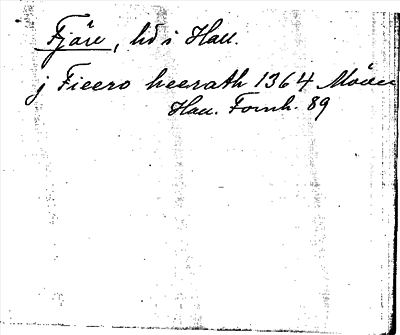 Fjäre, hd i Hall.
j Fieero heerath 1364
Hall. Fornh. 89